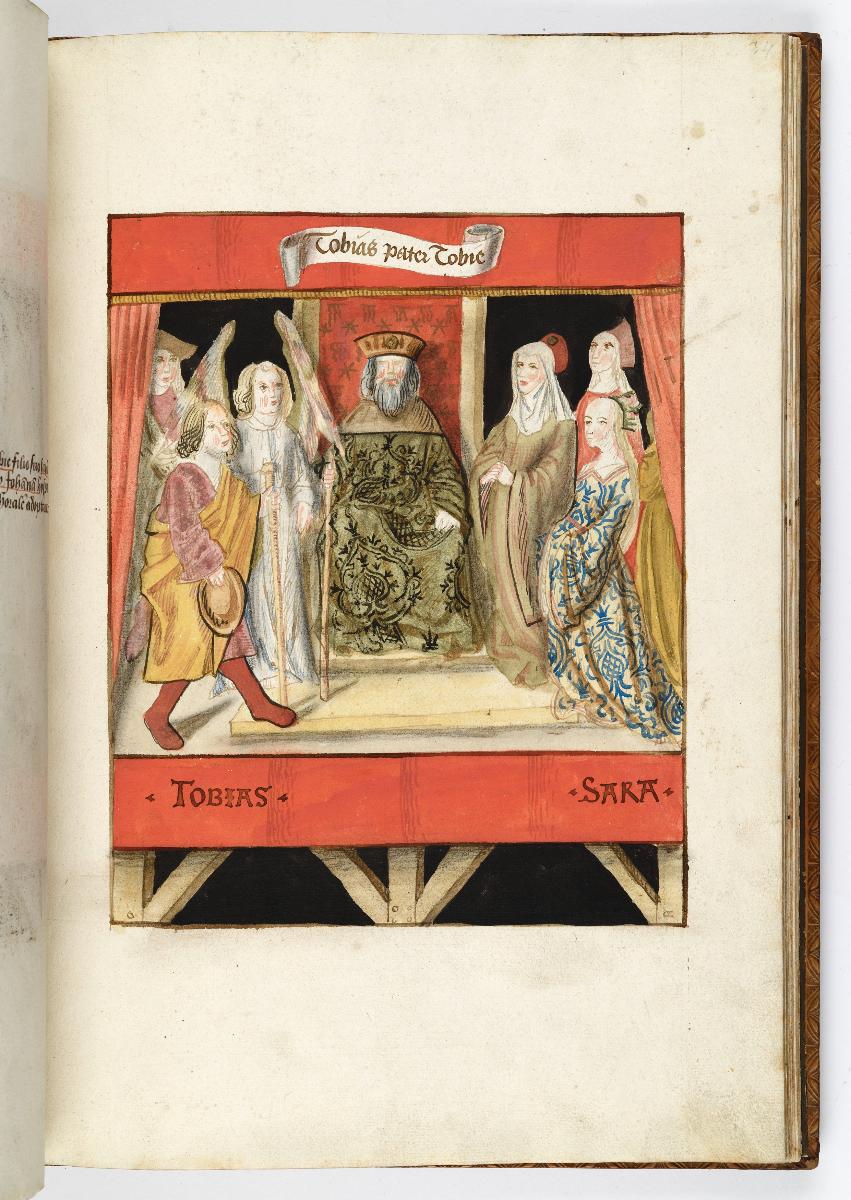 Tobias pater Tobie
TOBIAS
SARA
34